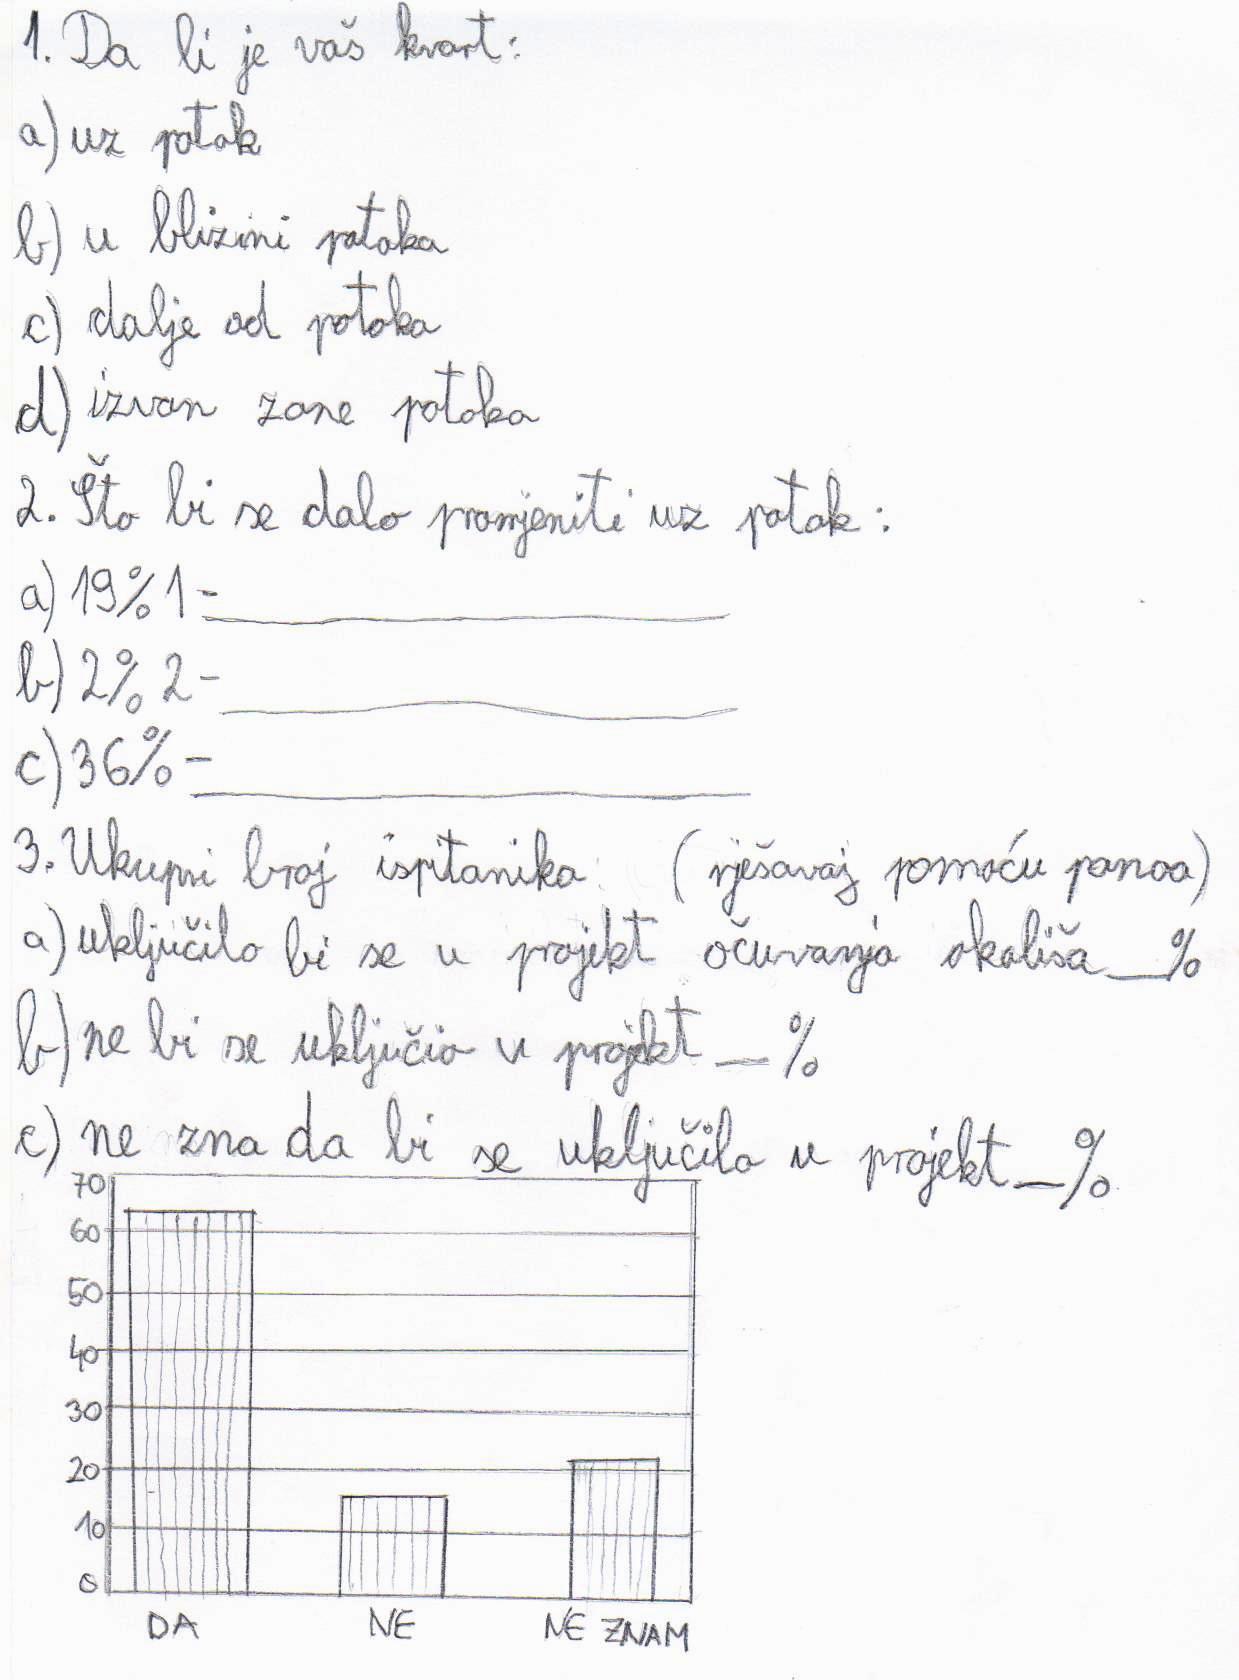 1. Da li je vaš kvart:
a) uz potok
b) u blizini potoka
c) dalje od potoka
d) izvan zone potoka
2. Što bi se dalo promjeniti uz potok:
a) 19% 1-
b) 2% 2-
c) 36% -
3. Ukupni broj ispitanika (rješavaj pomoću panoa)
a) uključilo bi se u projekt očuvanja okoliša __%
b) ne bi se uključio u projekt __%
c) ne zna da bi se uključilo u projekt __%
70
60
50
40
30
20
10
0
DA NE NE ZNAM